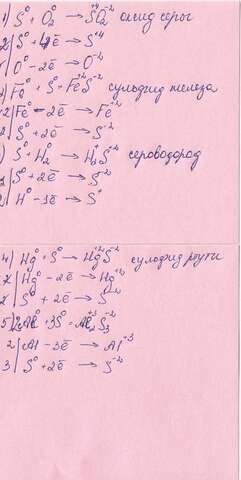 1) S⁰ + O₂⁰ → S⁺⁴O₂⁻² оксид серы
S⁰ + 4ē → S⁺⁴
O⁰ - 2ē → O⁻²
) Fe⁰ + S⁰ = Fe⁺²S⁻² сульфид железа
Fe⁰ - 2ē → Fe⁺²
S⁰ + 2ē → S⁻²
) S⁰ + H₂⁰ → H₂⁺S⁻² сероводород
S⁰ + 2ē → S⁻²
H⁰ - 1ē →
4) Hg⁰ + S⁰ → Hg⁺²S⁻² сульфид ртути
Hg⁰ - 2ē → Hg⁺²
S⁰ + 2ē → S⁻²
5) 2Al⁰ + 3S⁰ = Al₂⁺³S₃⁻²
2| Al - 3ē → Al⁺³
3| S⁰ + 2ē → S⁻²